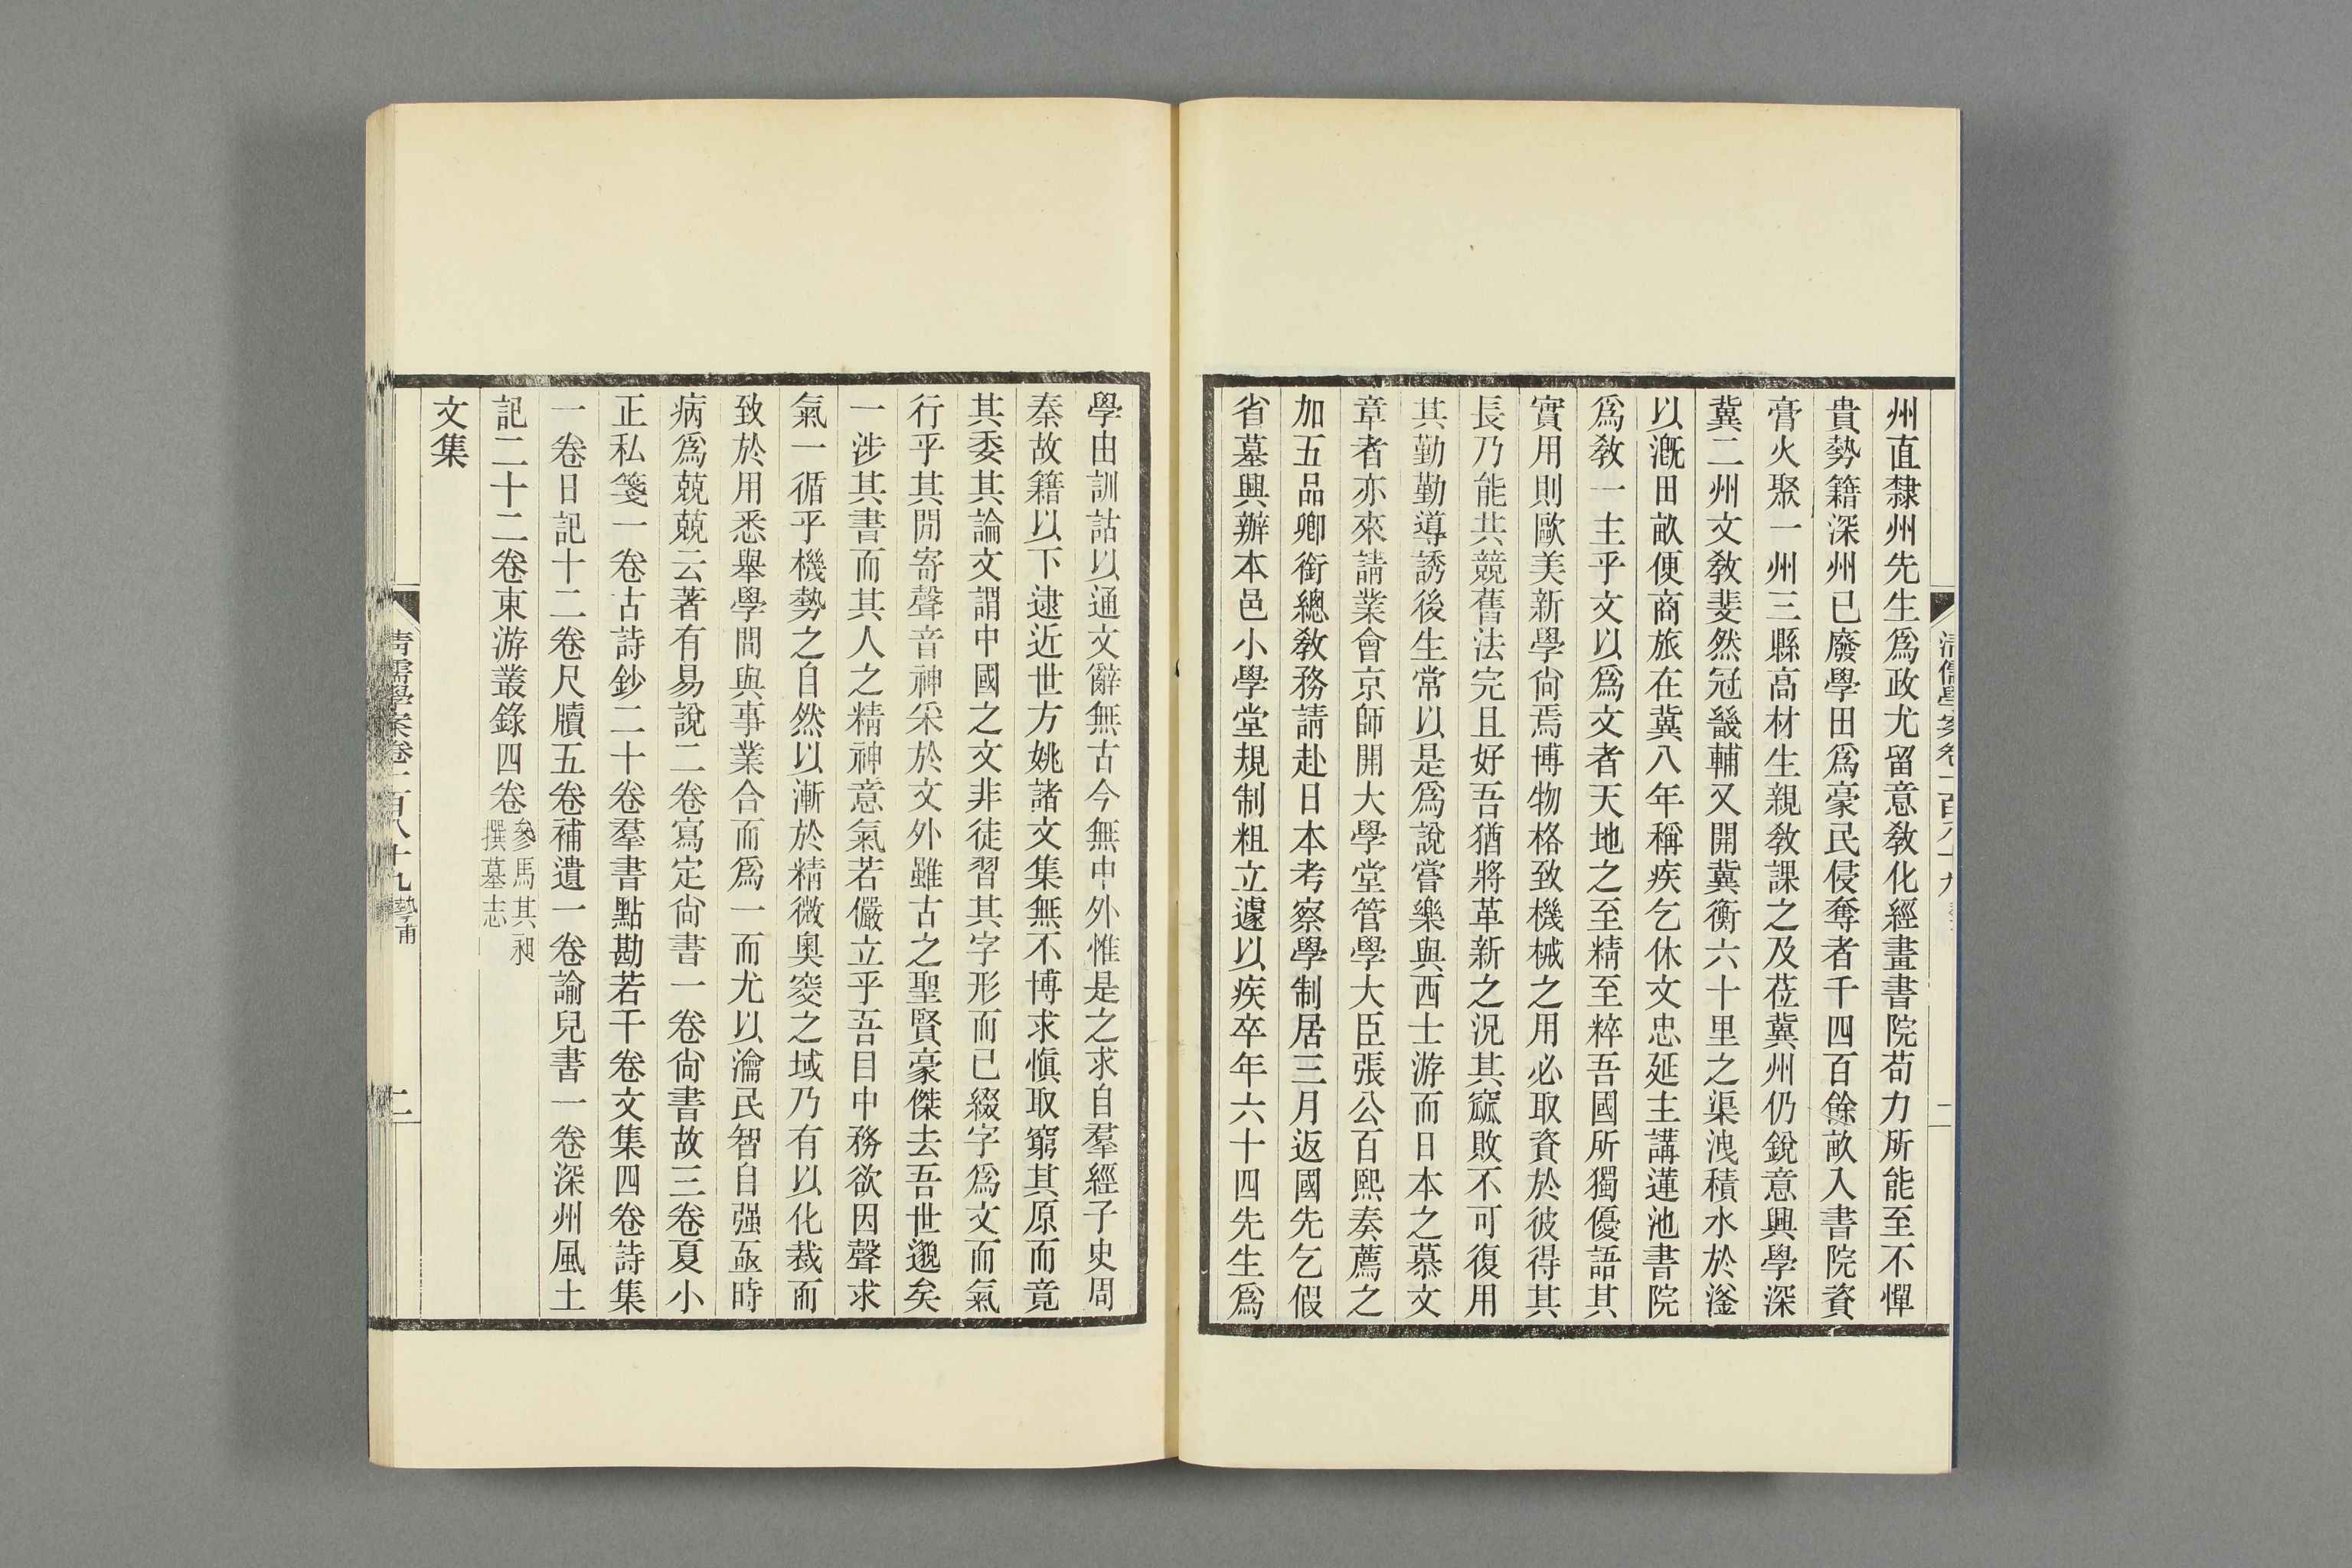 州直隸州先生爲政尤留意敎化經畫書院苟力所能至不憚
貴勢籍深州已廢學田爲豪民侵奪者千四百餘畝入書院資
膏火聚一州三縣高材生親敎課之及莅冀州仍銳意興學深
冀二州文敎斐然冠畿輔又開冀衡六十里之渠洩積水於滏
以漑田畝便商旅在冀八年稱疾乞休文忠延主講蓮池書院
爲敎一主乎文以爲文者天地之至精至粹吾國所獨優語其
實用則歐美新學尙焉博物格致機械之用必取資於彼得其
長乃能共競舊法完且好吾猶將革新之況其窳敗不可復用
其勤勤導誘後生常以是爲說嘗樂與西士游而日本之慕文
章者亦來請業會京師開大學堂管學大臣張公百熙奏薦之
加五品卿銜總敎務請赴日本考察學制居三月返國先乞假
省墓興辦本邑小學堂規制粗立遽以疾卒年六十四先生爲
學由訓詁以通文辭無古今無中外惟是之求自羣經子史周
秦故籍以下逮近世方姚諸文集無不博求愼取窮其原而竟
其委其論文謂中國之文非徒習其字形而已綴字爲文而氣
行乎其閒寄聲音神采於文外雖古之聖賢豪傑去吾世邈矣
一涉其書而其人之精神意氣若儼立乎吾目中務欲因聲求
氣一循乎機勢之自然以漸於精微奧窔之域乃有以化裁而
致於用悉舉學問與事業合而爲一而尤以瀹民智自强亟時
病爲兢兢云著有易說二卷寫定尙書一卷尙書故三卷夏小
正私箋一卷古詩鈔二十卷羣書點勘若干卷文集四卷詩集
一卷日記十二卷尺牘五卷補遺一卷諭兒書一卷深州風土
記二十二卷東游叢錄四卷參馬其昶
撰墓志
文集
清儒學案卷一百八十九 摯甫
二